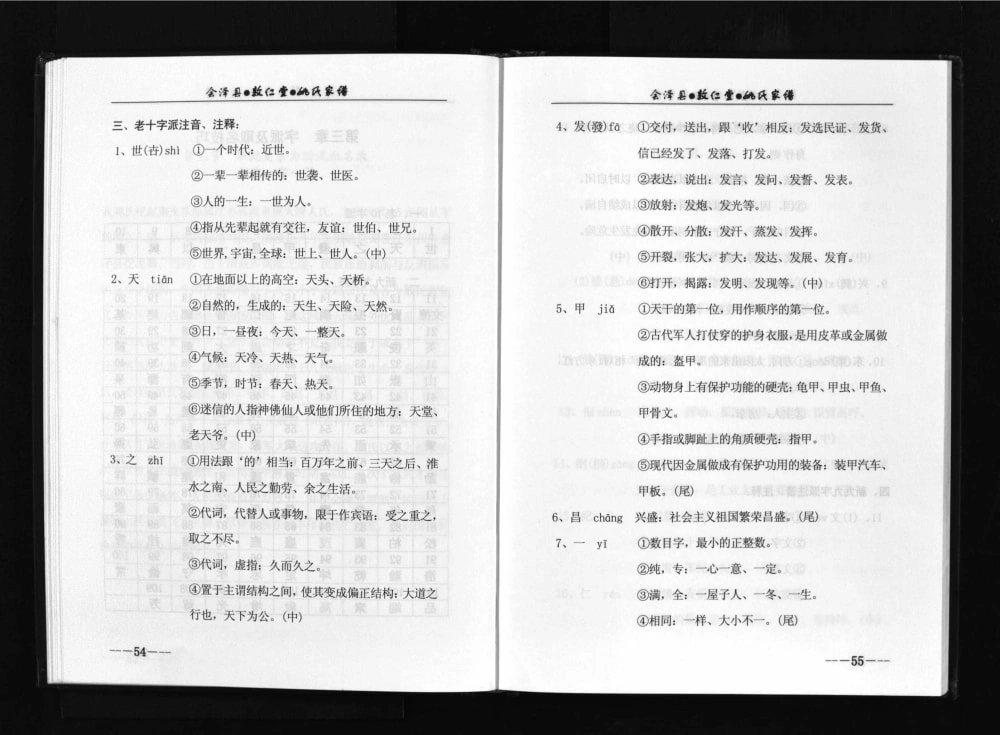 会泽县●敦仁堂●姚氏家谱
三、老十字派注音、注释：
1、世(卋)shì ①一个时代：近世。
②一辈一辈相传的：世袭、世医。
③人的一生：一世为人。
④指从先辈起就有交往，友谊：世伯、世兄。
⑤世界,宇宙,全球：世上、世人。(中)
2、天 tiān ①在地面以上的高空：天头、天桥。
②自然的，生成的：天生、天险、天然。
③日，一昼夜：今天、一整天。
④气候：天冷、天热、天气。
⑤季节，时节：春天、热天。
⑥迷信的人指神佛仙人或他们所住的地方：天堂、
老天爷。(中)
3、之 zhī ①用法跟‘的’相当：百万年之前、三天之后、淮
水之南、人民之勤劳、余之生活。
②代词，代替人或事物，限于作宾语：受之重之，
取之不尽。
③代词，虚指：久而久之。
④置于主谓结构之间，使其变成偏正结构：大道之
行也，天下为公。(中)
———54———
会泽县●敦仁堂●姚氏家谱
4、发(發)fā ①交付，送出，跟‘收’相反：发选民证、发货、
信已经发了、发落、打发。
②表达，说出：发言、发问、发誓、发表。
③放射：发炮、发光等。
④散开、分散：发汗、蒸发、发挥。
⑤开裂，张大、扩大：发达、发展、发育。
⑥打开，揭露：发明、发现等。(中)
5、甲 jiǎ ①天干的第一位，用作顺序的第一位。
②古代军人打仗穿的护身衣服,是用皮革或金属做
成的：盔甲。
③动物身上有保护功能的硬壳：龟甲、甲虫、甲鱼、
甲骨文。
④手指或脚趾上的角质硬壳：指甲。
⑤现代因金属做成有保护功用的装备：装甲汽车、
甲板。(尾)
6、昌 chāng 兴盛：社会主义祖国繁荣昌盛。(尾)
7、一 yī ①数目字，最小的正整数。
②纯，专：一心一意、一定。
③满，全：一屋子人、一冬、一生。
④相同：一样、大小不一。(尾)
———55———